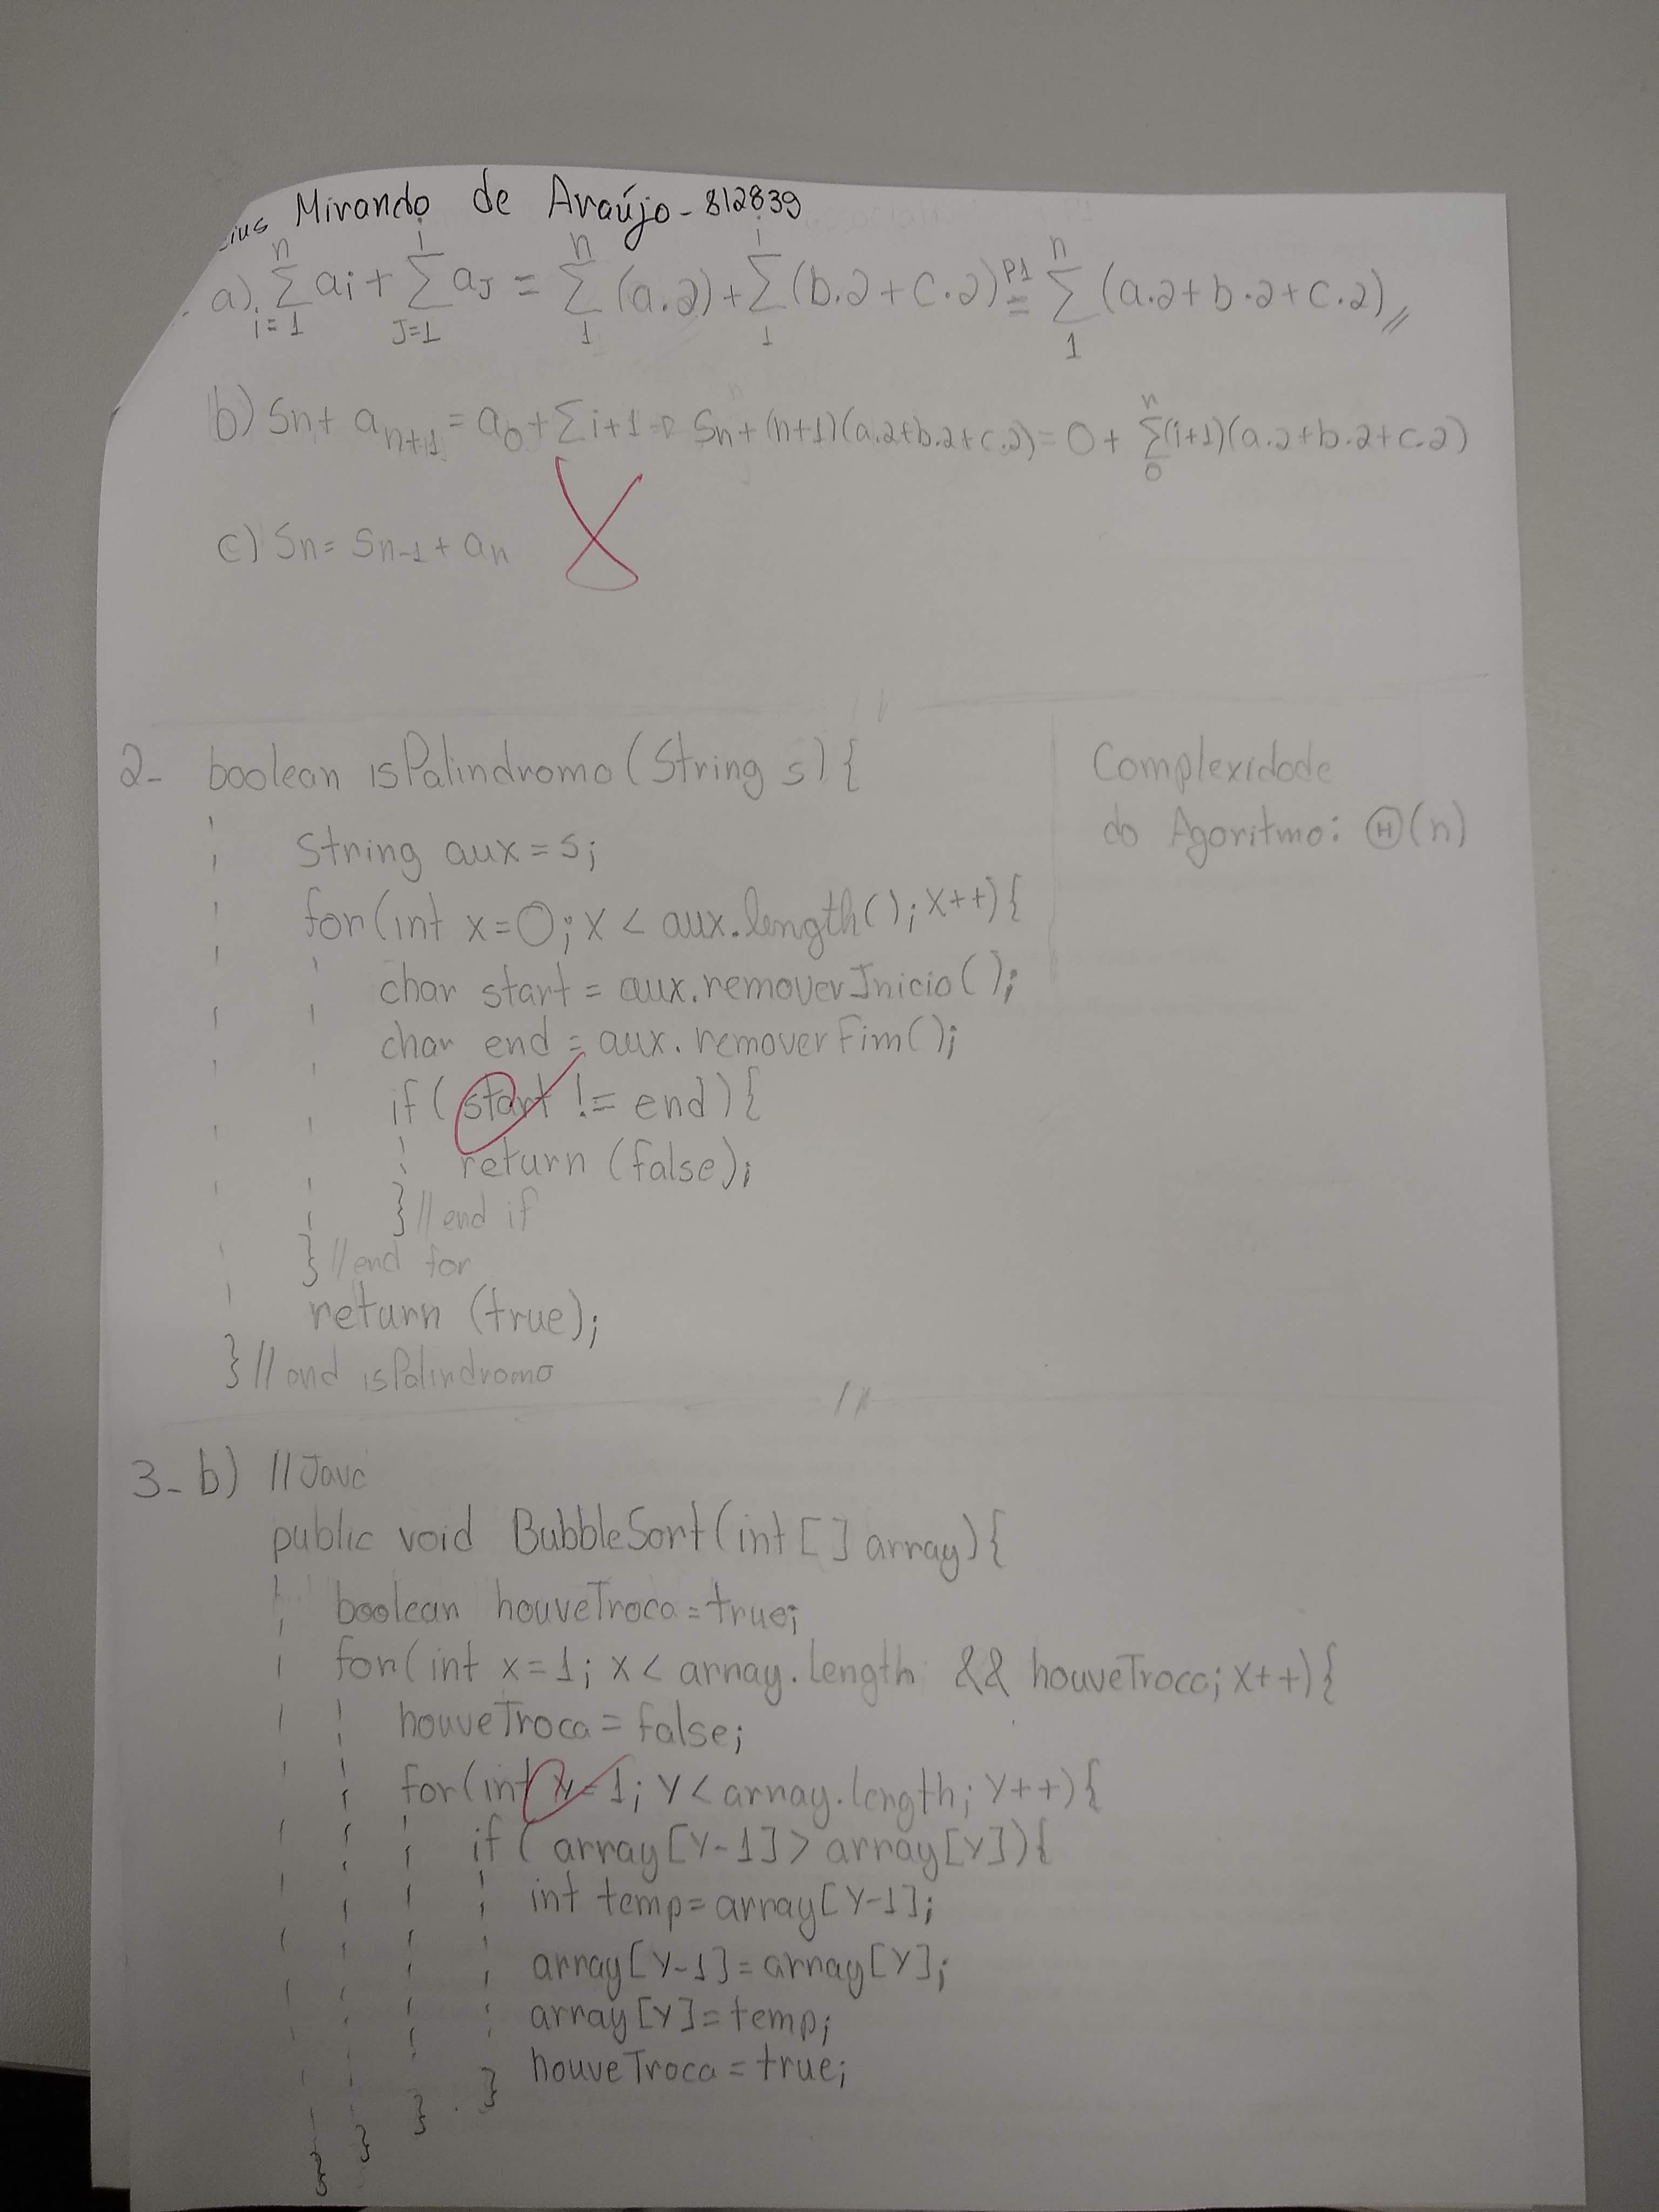 ius Miranda de Araújo - 812839
a) n∑i=1 ai + i∑J=1 aJ = n∑1 (a.2) + i∑1 (b.2 + c.2) P1= n∑1 (a.2 + b.2 + c.2)//
b) Sn + an+1 = a0 + ∑i+1 → Sn + (n+1)(a.2+b.2+c.2) = 0 + n∑0 (i+1)(a.2+b.2+c.2)
c) Sn = Sn-1 + an
2- boolean isPalindromo (String s) {
String aux = s;
for (int x=0; x < aux.length(); x++) {
char start = aux.removerInicio();
char end = aux.removerFim();
if (start != end) {
return (false);
} // end if
} // end for
return (true);
} // end isPalindromo
Complexidade
do Agoritmo: Θ(n)
3- b) // Java
public void BubbleSort (int [] array) {
boolean houveTroca = true;
for (int x=1; x < array.length && houveTroca; x++) {
houveTroca = false;
for (int y=1; y < array.length; y++) {
if (array[y-1] > array[y]) {
int temp = array[y-1];
array[y-1] = array[y];
array[y] = temp;
houveTroca = true;
}
}
}
}